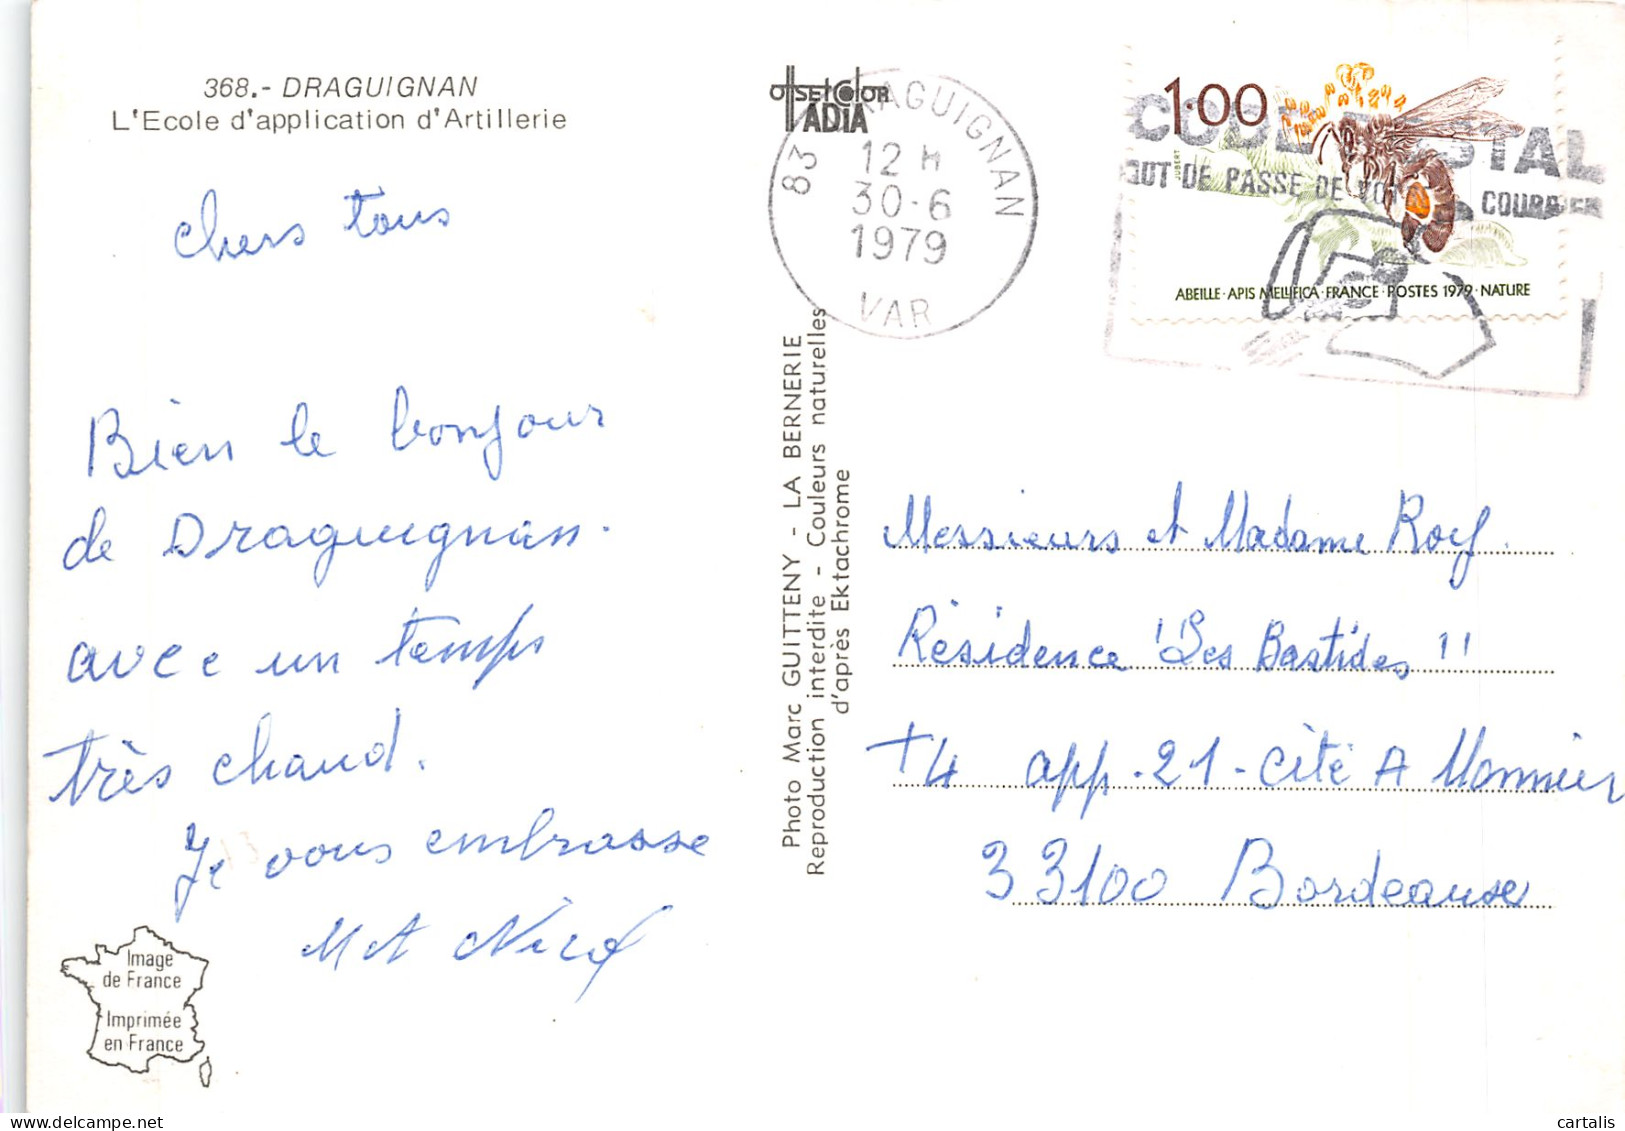 368.- DRAGUIGNAN
L'Ecole d'application d'Artillerie
chers tous
Bien le bonjour
de Draguignan.
avec un temps
très chaud.
Je vous embrasse
Image
de France
Imprimée
en France
offset color
ADIA
Photo Marc GUITTENY - LA BERNERIE
Reproduction interdite - Couleurs naturelles
d'après Ektachrome
83 DRAGUIGNAN
12 H
30-6
1979
VAR
1.00
CODE POSTAL
MOT DE PASSE DE VOTRE COURRIER
ABEILLE · APIS MELLIFICA · FRANCE · POSTES 1979 · NATURE
Messieurs et Madame
Résidence "Les Bastides"
T4 app. 21 - cité A Monnier
33100 Bordeaux
cartalis